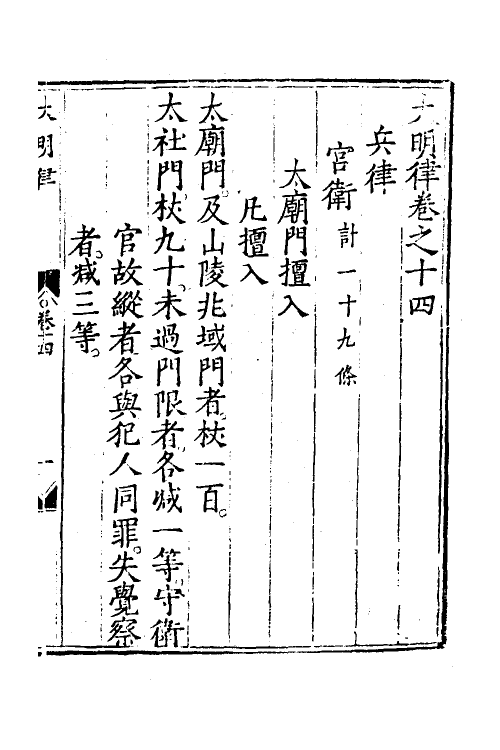 大明律卷之十四
兵律
宮衛計一十九條
太廟門擅入
凡擅入
太廟門。及山陵兆域門者。杖一百。
太社門。杖九十。未過門限者。各減一等。守衛
官故縱者。各與犯人同罪。失覺察
者。減三等。
大明律 卷十四 一